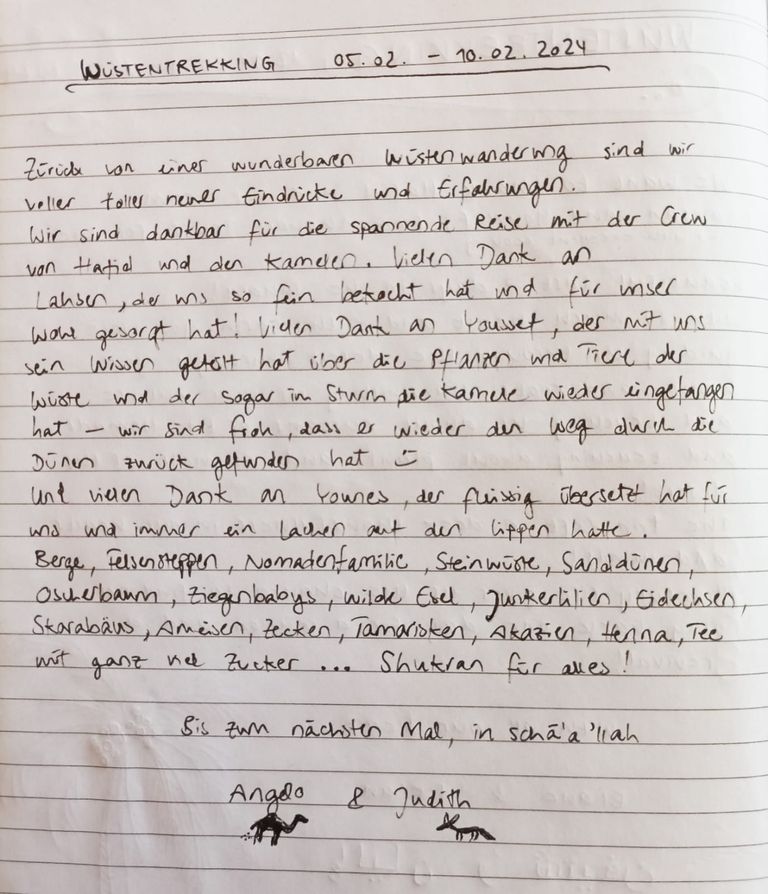 WÜSTENTREKKING 05.02. – 10.02.2024
Zurück von einer wunderbaren Wüstenwanderung sind wir
voller toller neuer Eindrücke und Erfahrungen.
Wir sind dankbar für die spannende Reise mit der Crew
von Hafid und den Kamelen. Vielen Dank an
Lahsen, der uns so fein bekocht hat und für unser
Wohl gesorgt hat! Vielen Dank an Youssef, der mit uns
sein Wissen geteilt hat über die Pflanzen und Tiere der
Wüste und der sogar im Sturm die Kamele wieder eingefangen
hat – wir sind froh, dass er wieder den Weg durch die
Dünen zurück gefunden hat
Und vielen Dank an Younes, der fleissig übersetzt hat für
uns und immer ein Lachen auf den Lippen hatte.
Berge, Felsensteppen, Nomadenfamilie, Steinwüste, Sanddünen,
Oscherbaum, Ziegenbabys, wilde Esel, Junkerlilien, Eidechsen,
Skarabäus, Ameisen, Zecken, Tamarisken, Akazien, Henna, Tee
mit ganz viel Zucker ... Shukran für alles!
Bis zum nächsten Mal, in schā'a 'llah
Angelo & Judith